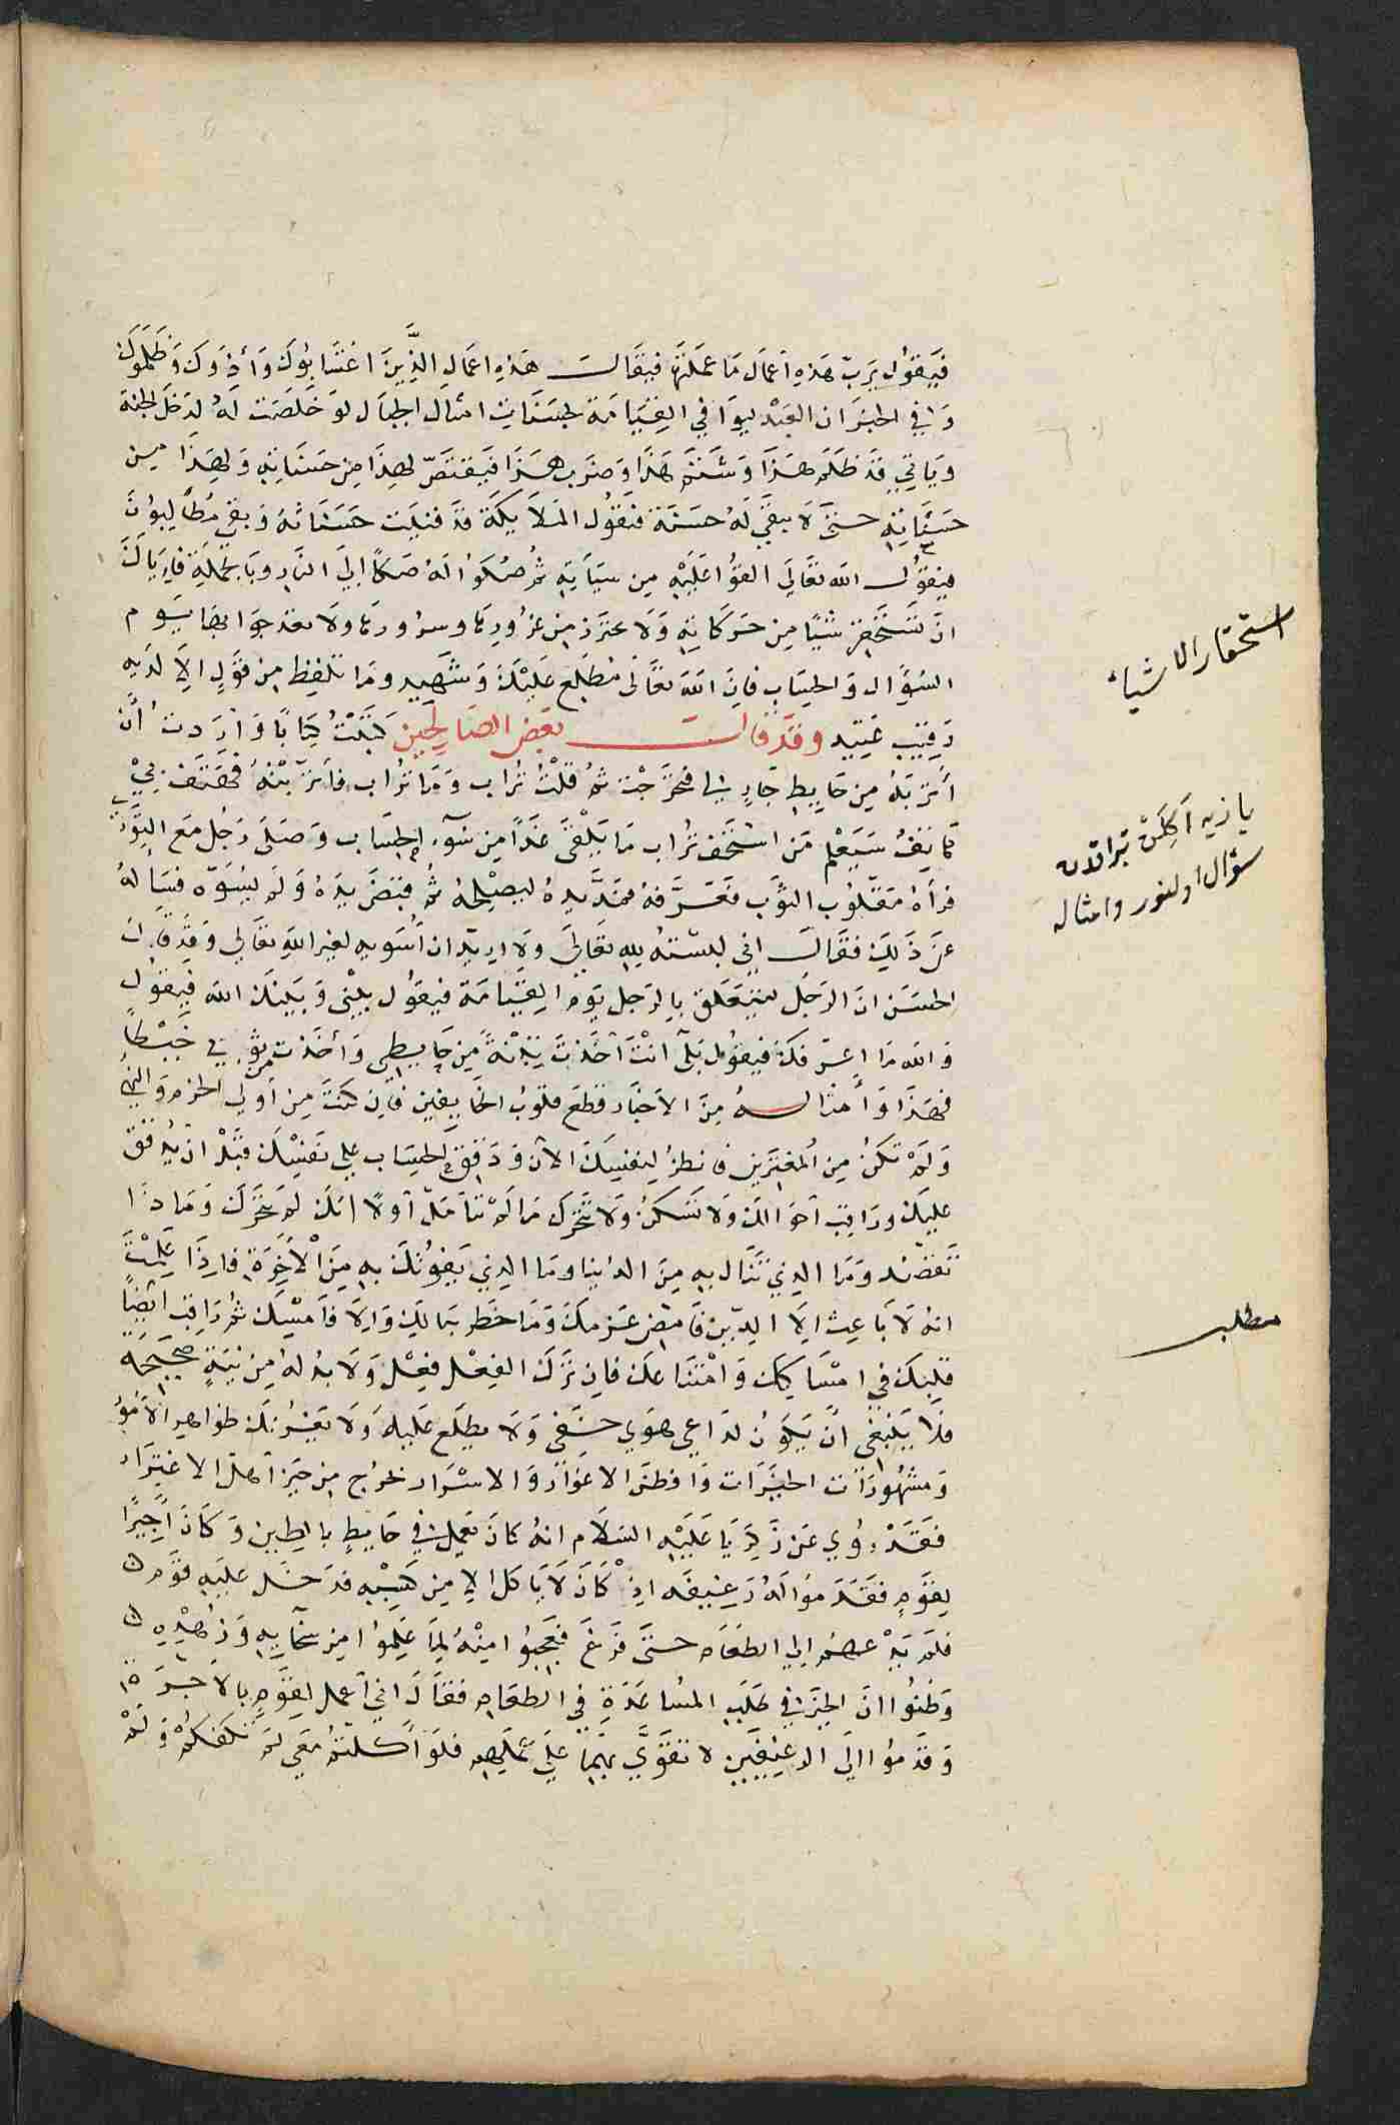 فَيَقُول يَرَبّ هَذِهِ اَعْمَال مَا عَمَلْتَهَا فَيُقَالــــ هَذِهِ اعمَالِ الذَّينَ اغْتَابُوْكَ وَأذَوكَ وَظَلَمُوكَ
وَفي الخبَرَ ان العَبْد ليوَافي القِيَامَة بحَسَنَات امثَال الجبَال لَوْ خَلَصَت لَهُ لدَخَل الجنة
وَيَاتي قدَ ظَلَمَ هَذَا وَشَتَمَ هَذَا وَضَرَب هَذَا فَيقتَصّ لهِذَا مِن حَسَنَاتِهِ وَلِهَذَا مِن
حَسَنَاتِهِ حَتيَّ لاَ يَبقيَ لهُ حسَنَة فتَقُول المَلاَيكَة قدَ فَنِيَت حَسَنَاتهُ وَبقي مُطَالِبُونَ
فيقوُل الله تعَاليَ القوُا عَلَيْهِ مِن سَيَأتِهِ ثمُ صُكّوُا لهُ صَكاً اليَ النَّارِ وبَالجملَةِ فَايَاكَ
انْ تَسْتَحْقِرَ شَيًا مِن حَرَكَاتِهِ وَلاَ تحتَرَز مِن غرُورِهَا وسرُورهَا ولا تعد جوَابهَا يَوم
السُؤَال وَالحِسَاب فانَ اللهَ تعَالَى مُطَلِع عَلَيْكَ وَشَهِيد ومَا تلفِظ مِن قَوَلٍ الِاَ لدَيهِ
رَقِيب عَتِيد وَقَدْ قَالَــــ بَعَض الصَالِحِين كتَبْتُ كتَابًا وَاَرَدتُ أنْ
أتَربَهُ مِن حَايِط جَارِي فتحَرَّجْت ثمُ قلْتُ تُراب وَمَا تُرَاب فأتَرَبْتهُ فهَتَف بي
هَاتفُ سَيَعْلم مَن اسْتَخَف تُرَاب مَا يَلْقَى غدًا مِن سُوَء الحِسَاب وَصَلىَ رَجُل مَع الثوَري
فرأهُ مَقلُوب الثوَب فعَرَّفهُ فمَدَّ يدهُ ليصْلِحهُ ثمُ قبَضَ يدَهُ وَلَم يسُوَّه فسَألهُ
عَن ذَلِك فقَالَــــ اني لبسْتهُ للهِ تعَاليَ وَلا اريدُ ان أسَويه لغير اللهَ تعَالي وَقدَ قَالَ
الحسَن انَ الرَجلُ ليتَعَلق بِالرَجل يَومَ القيَامَة فيقوُل بيْنى وَبَيْنكَ الله فيقوُل
وَاللهِ مَا اعرفكَ فيقوُل بَلىَ انْتَ اخَذتَ تِبْنَةً مِن حَايِطي وَأخَذت مِن ثوبي خَيْطاً
فهَذَا وَأمْثَالــــهُ مِنَ الاَخبَار قطعَ قلُوبُ الخَايِفِين فَاِن كنْتَ مِن أوليِ الحزم وَالنهيَ
وَلَمْ تَكُنْ مِنِ المُغتَرَين فانظرُ لِنَفسِكَ الاَن وَدَقِقّ الحِسَاب عَلي نفسِكَ قَبْل انْ يُدقق
عليكَ ورَاقِب اَحوَالكَ وَلا تَسكنُ وَلا تتَحَرك مَا لَمْ تتَأمَل اَوَلاً انكَ لِمَ تَتحَرَكَ وَمَا ذَا
تَقصْد وَمَا الذِي تنَال بهِ مِنَ الدُنيا ومَا الذِي يَفوُتكَ بهِ مِنَ الأَخِرَةِ فاِذَا عَلِمْتَ
انهُ لاَ بَاعِث الِاَ الدِّين فَامض عَزمكَ وَمَا خطَر بَبالِكَ وَالِاَ فَامْسِك ثمُ رَاقِب ايْضًا
قَلبَكَ في امسَاككَ وَامْتنَاعكَ فاِن تَرَكَ الفِعْل فِعْل وَلاَ بدُ لهُ مِن نِيَةٍ صَحِيحَةٍ
فَلاَ يَنْبَغي انَّ يَكوُن لدَاعِى هوَي خَفيَ وَلاَ يطلِع عَليهِ وَلاَ يَغُرّنكَ ظوَاهِر الاَمُورِ
وَمَشهُورَات الخيرَات وَافطن الاغوَار وَالاسْرَار تخرُج مِن حَيز أهل الاغتِرَار
فقَدْ رُوي عَن زَكريَا عَلَيْهِ السَلاَم انهُ كانَ يَعمل في حَايِط بالطِين وَكانَ أجيرًا
لِقوَم فقدَموُا لهُ رَغِيفَه اذْ كَانَ لاَيَاكل الا مِن كَسْبِهِ فدَخَل عَليه قَوم
فلَم يَدْعهُم الي الطَعَام حتىَ فَرغَ فتَعجَبُوا مِنْهُ لِمَا عَلِمُوا مِن سخَآيِهِ وَزُهْدِهِ
وَظنُوا انَ الخيَر في طَلَبِ المسُاعَدَة في الطعَام فقَالَ اني أعمل لقوَمٍ بالاجرَة
وَقدَموُا اليَ الرَغِيفَين لاتقَوَّي بهَما عَليَ عَمَلِهِم فلَوَ أكلتُم مَعي لمَ تَكفكُمْ وَلمْ
استحقار الاشياء
يازيه اكلن تراقدن
سؤال اولنور وامثاله
مطلب